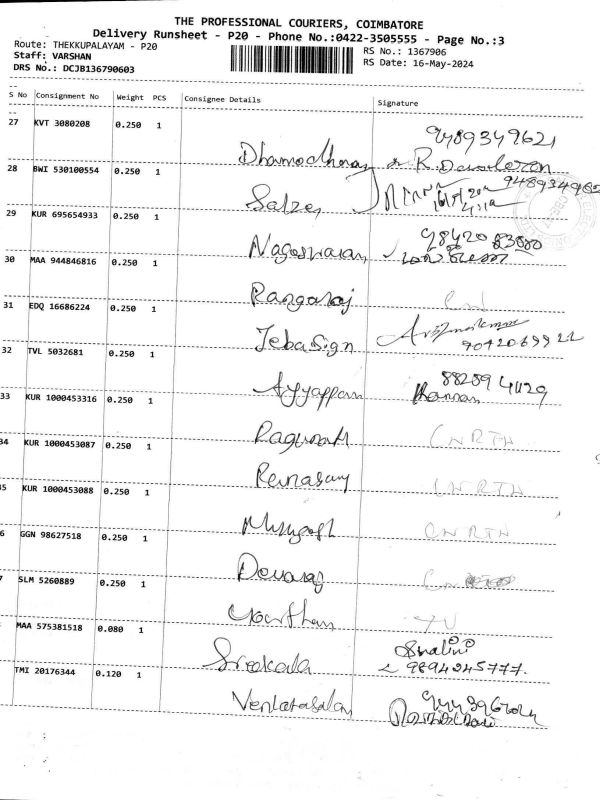 THE PROFESSIONAL COURIERS, COIMBATORE
Delivery Runsheet - P20 - Phone No.:0422-3505555 - Page No.:3
Route: THEKKUPALAYAM - P20
RS No.: 1367906
Staff: VARSHAN
RS Date: 16-May-2024
DRS No.: DCJB136790603
S No Consignment No Weight PCS Consignee Details Signature
27 KVT 3080208 0.250 1
9489349621
Dhamodharan R. Devaharan
28 BWI 530100554 0.250 1
Salzer
29 KUR 695654933 0.250 1
98420 83880
Nageswaran
30 MAA 944846816 0.250 1
Rangaraj
31 EDQ 16686224 0.250 1
Jeba Sign
32 TVL 5032681 0.250 1
88259 41129
Ayyappan Kannan
33 KUR 1000453316 0.250 1
Ragunath CNRTH
34 KUR 1000453087 0.250 1
Ramasamy CNRTH
35 KUR 1000453088 0.250 1
CNRTH
6 GGN 98627518 0.250 1
Devaraj
7 SLM 5260889 0.250 1
MAA 575381518 0.080 1
Shalini
Sreekala 9894245777.
TMI 20176344 0.120 1
Venkatasalam